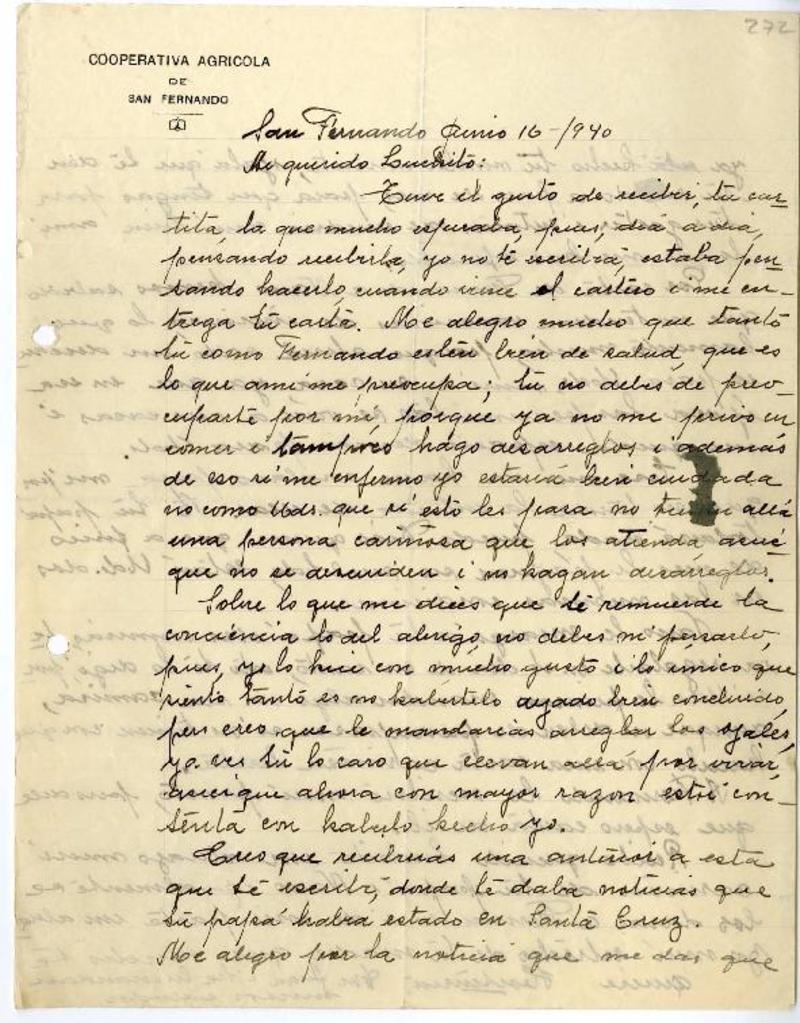 272
COOPERATIVA AGRICOLA
DE
SAN FERNANDO
San Fernando Junio 16-/940
Mi querido Luchito:
Tuve el gusto de recibir, tu car-
tita, la que mucho esperaba, pues, dia a dia,
pensando recibirla, yo no te escribia, estaba pen-
sando hacerlo, cuando viene el cartero i me en-
trega tu carta. Me alegro mucho que tanto
tu como Fernando estén bien de salud, que es
lo que ami me preocupa; tu no debes de preo-
cuparte por mi, porque ya no me privo en
comer i tampoco hago desarreglos i además
de eso si me enfermo yo estaria bien cuidada
no como Uds. que si esto les pasa no tienen allá
una persona cariñosa que los atienda asi é
que no se descuiden i no hagan desarreglos.
Sobre lo que me dices que te remuerde la
conciencia lo del abrigo, no debes ni pensarlo,
pues, yo lo hice con mucho gusto i lo único que
siento tanto es no habertelo ayado bien concluido,
pero creo que le mandarias arreglar los ojales,
ya ves tu lo caro que llevan allá por virar,
asi es que ahora con mayor razon estoi con-
tenta con haberlo hecho yo.
Creo que recibirias una anterior a esta
que te escribi, donde te daba noticias que
tu papá habia estado en Santa Cruz.
Me alegro por la noticia que me das que